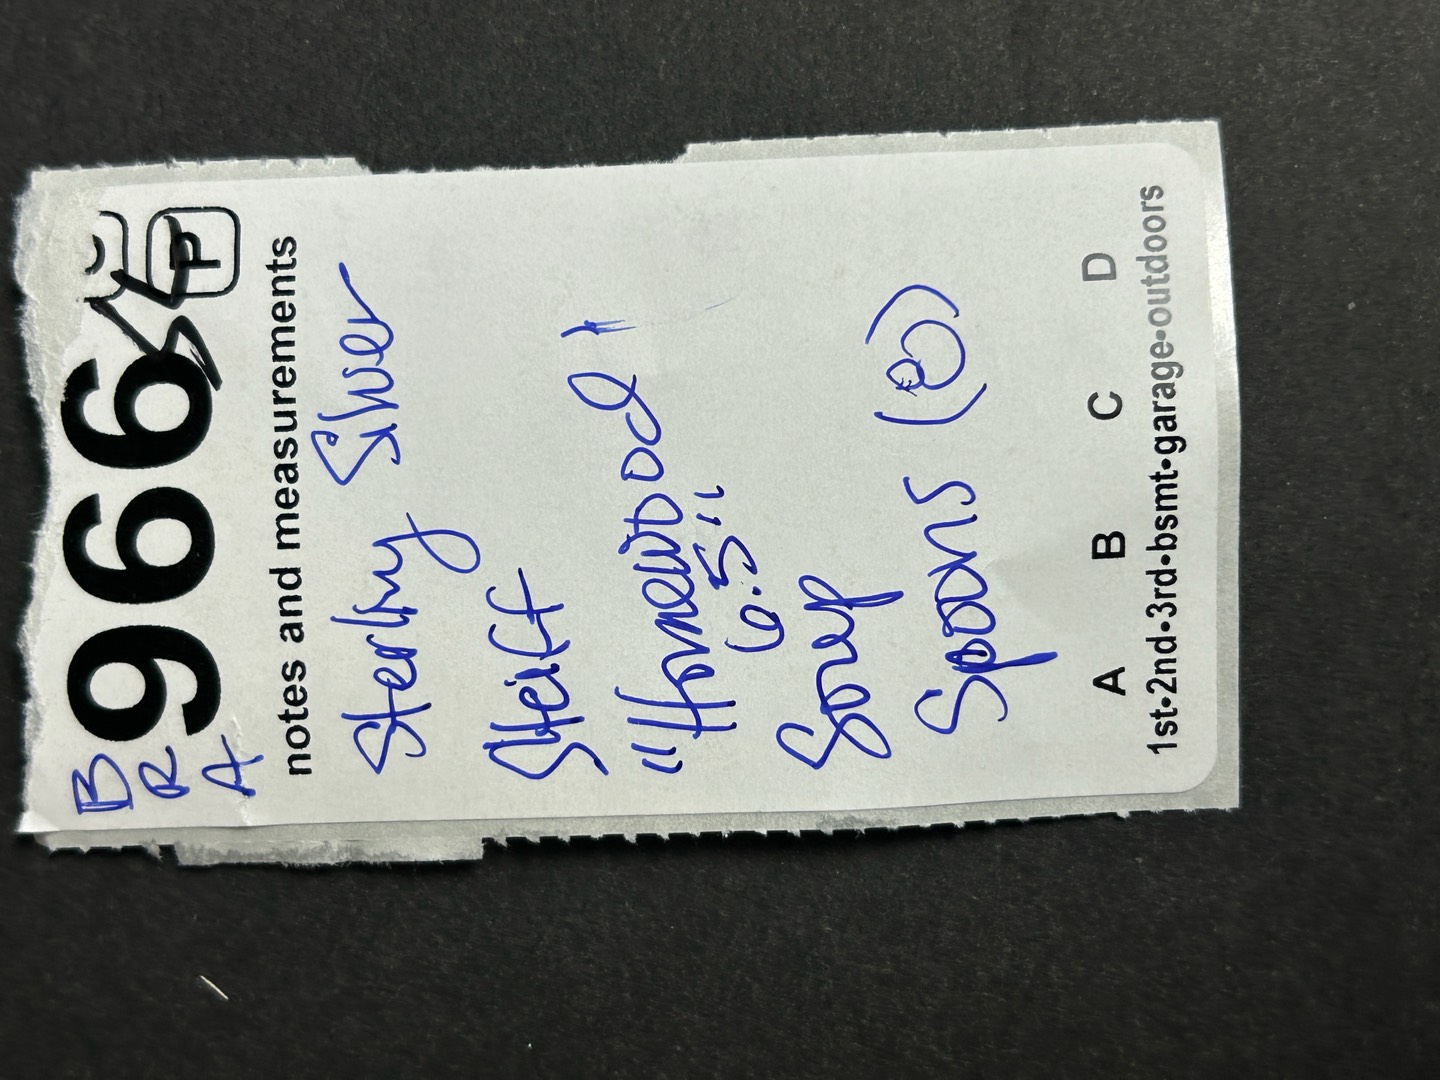 B
R
A
966
P
notes and measurements
Sterling Silver
Steiff
"Homewood"
6.5"
Soup
Spoons (8)
A B C D
1st•2nd•3rd•bsmt•garage•outdoors